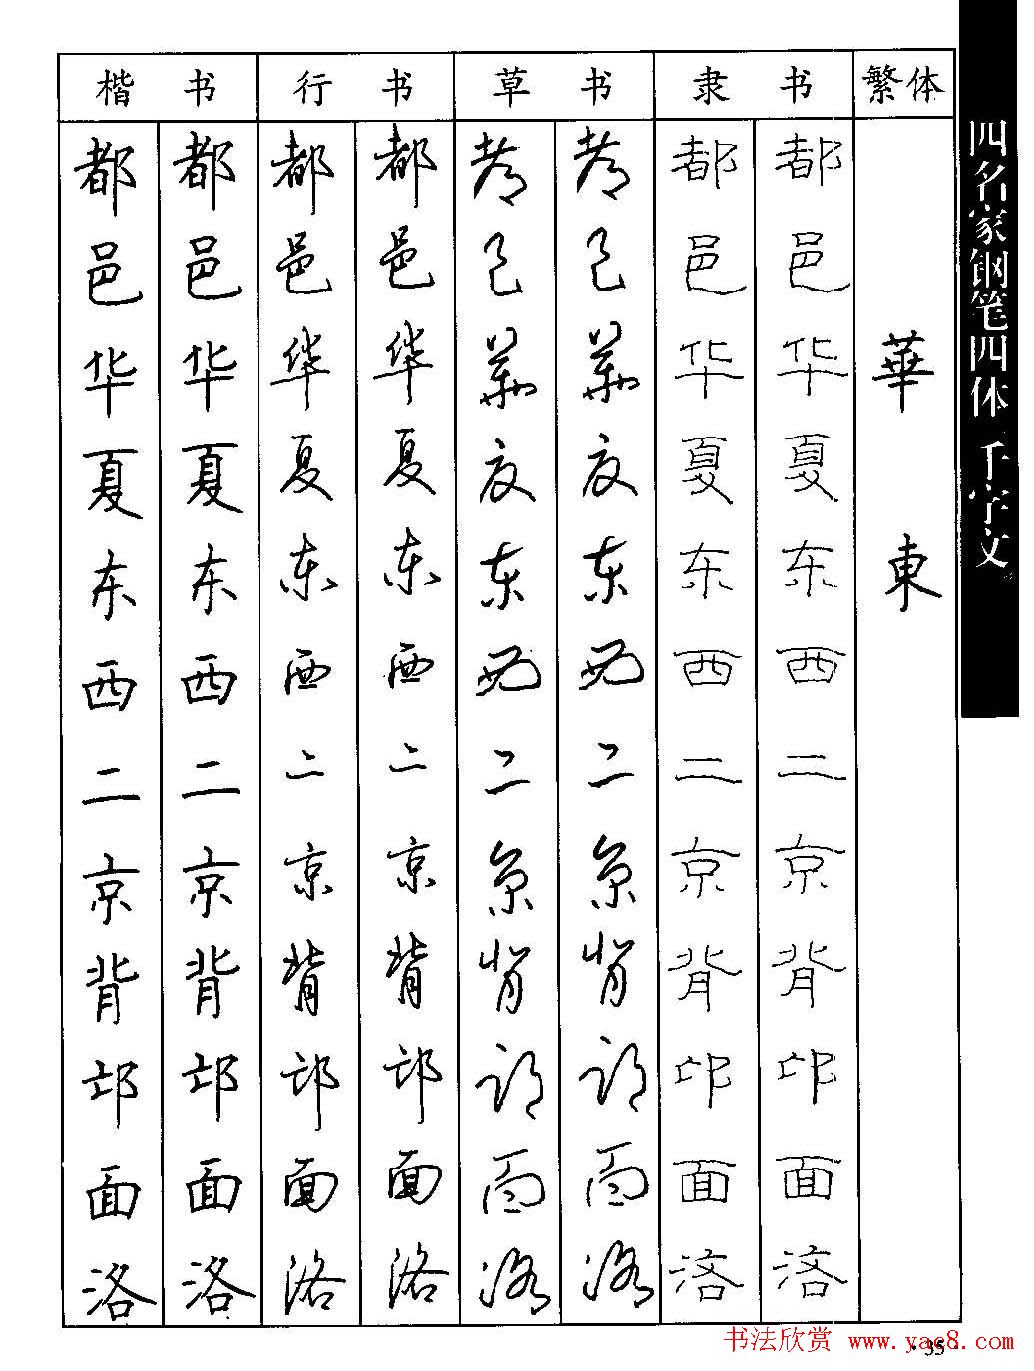 楷书 行书 草书 隶书 繁体
都 都 都 都 都 都 都 都
邑 邑 邑 邑 邑 邑 邑 邑
华 华 华 华 华 华 华 华 華
夏 夏 夏 夏 夏 夏 夏 夏
东 东 东 东 东 东 东 东 東
西 西 西 西 西 西 西 西
二 二 二 二 二 二 二 二
京 京 京 京 京 京 京 京
背 背 背 背 背 背 背 背
邙 邙 邙 邙 邙 邙 邙 邙
面 面 面 面 面 面 面 面
洛 洛 洛 洛 洛 洛 洛 洛
四名家钢笔四体 千字文
书法欣赏 www.yac8.com
·35·